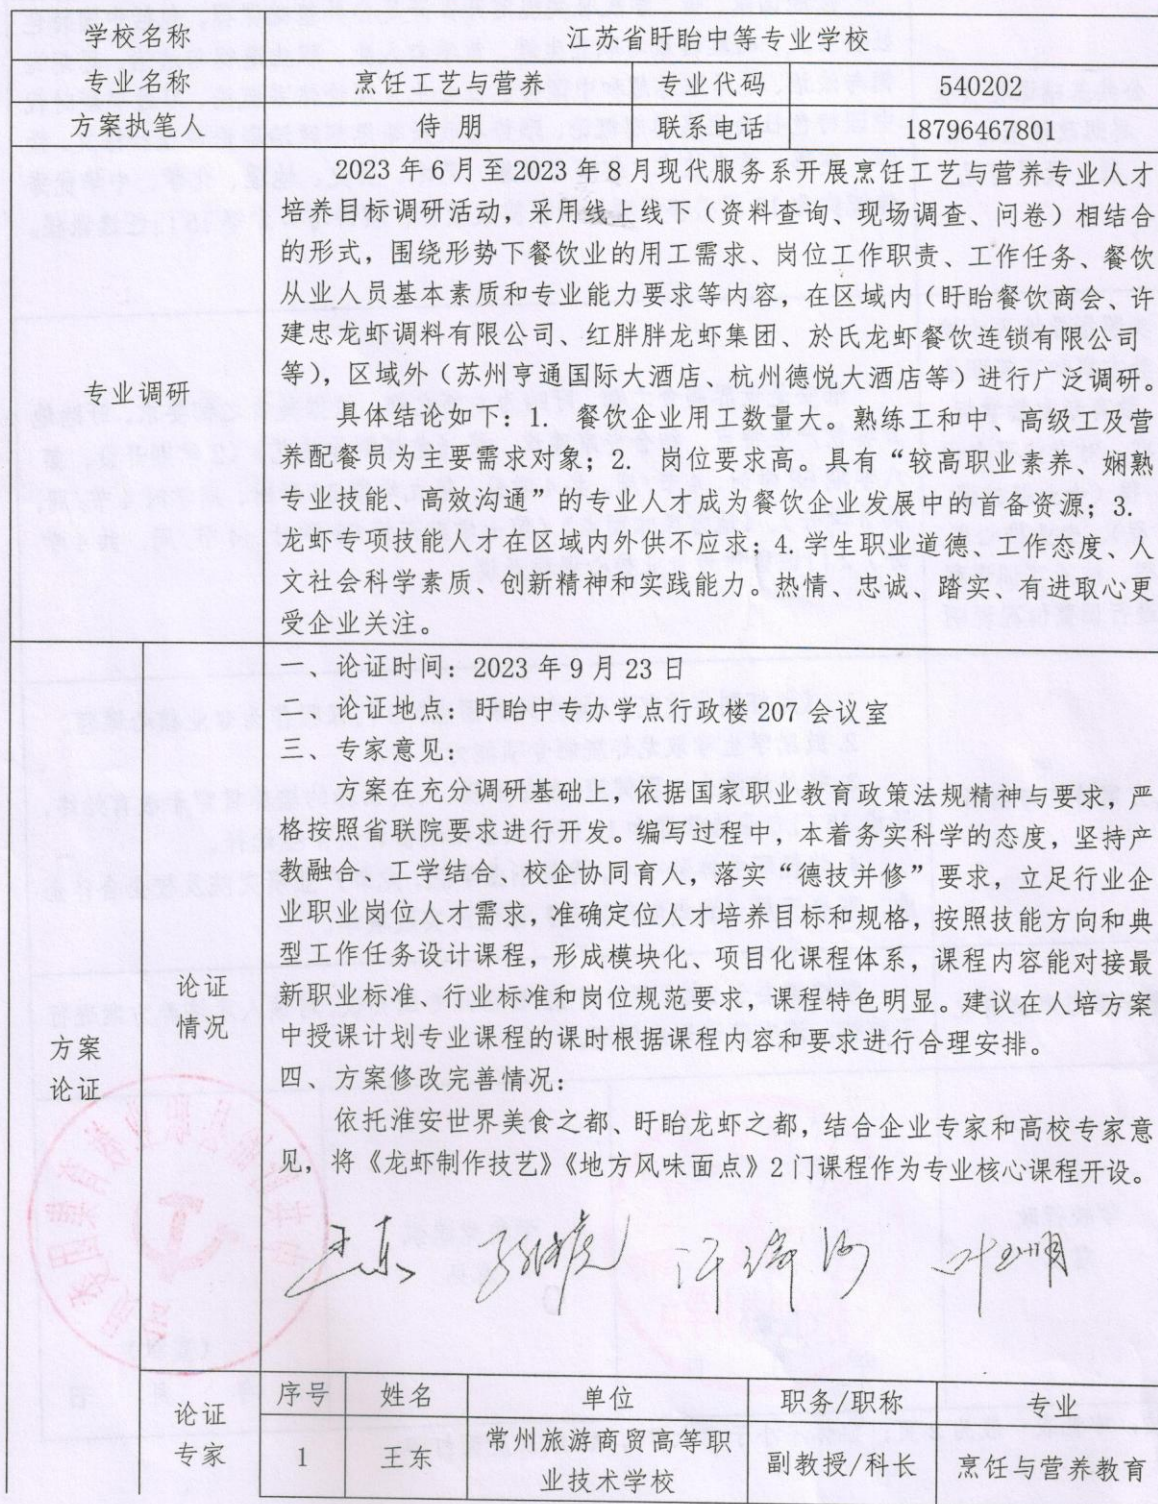 学校名称 江苏省盱眙中等专业学校
专业名称 烹饪工艺与营养 专业代码 540202
方案执笔人 侍 朋 联系电话 18796467801
专业调研
2023 年 6 月至 2023 年 8 月现代服务系开展烹饪工艺与营养专业人才
培养目标调研活动，采用线上线下（资料查询、现场调查、问卷）相结合
的形式，围绕形势下餐饮业的用工需求、岗位工作职责、工作任务、餐饮
从业人员基本素质和专业能力要求等内容，在区域内（盱眙餐饮商会、许
建忠龙虾调料有限公司、红胖胖龙虾集团、於氏龙虾餐饮连锁有限公司
等），区域外（苏州亨通国际大酒店、杭州德悦大酒店等）进行广泛调研。
具体结论如下：1. 餐饮企业用工数量大。熟练工和中、高级工及营
养配餐员为主要需求对象；2. 岗位要求高。具有“较高职业素养、娴熟
专业技能、高效沟通”的专业人才成为餐饮企业发展中的首备资源；3.
龙虾专项技能人才在区域内外供不应求；4. 学生职业道德、工作态度、人
文社会科学素质、创新精神和实践能力。热情、忠诚、踏实、有进取心更
受企业关注。
方案
论证
论证
情况
一、论证时间：2023 年 9 月 23 日
二、论证地点：盱眙中专办学点行政楼 207 会议室
三、专家意见：
方案在充分调研基础上，依据国家职业教育政策法规精神与要求，严
格按照省联院要求进行开发。编写过程中，本着务实科学的态度，坚持产
教融合、工学结合、校企协同育人，落实“德技并修”要求，立足行业企
业职业岗位人才需求，准确定位人才培养目标和规格，按照技能方向和典
型工作任务设计课程，形成模块化、项目化课程体系，课程内容能对接最
新职业标准、行业标准和岗位规范要求，课程特色明显。建议在人培方案
中授课计划专业课程的课时根据课程内容和要求进行合理安排。
四、方案修改完善情况：
依托淮安世界美食之都、盱眙龙虾之都，结合企业专家和高校专家意
见，将《龙虾制作技艺》《地方风味面点》2 门课程作为专业核心课程开设。
王东
论证
专家
序号 姓名 单位 职务/职称 专业
1 王东 常州旅游商贸高等职
业技术学校 副教授/科长 烹饪与营养教育